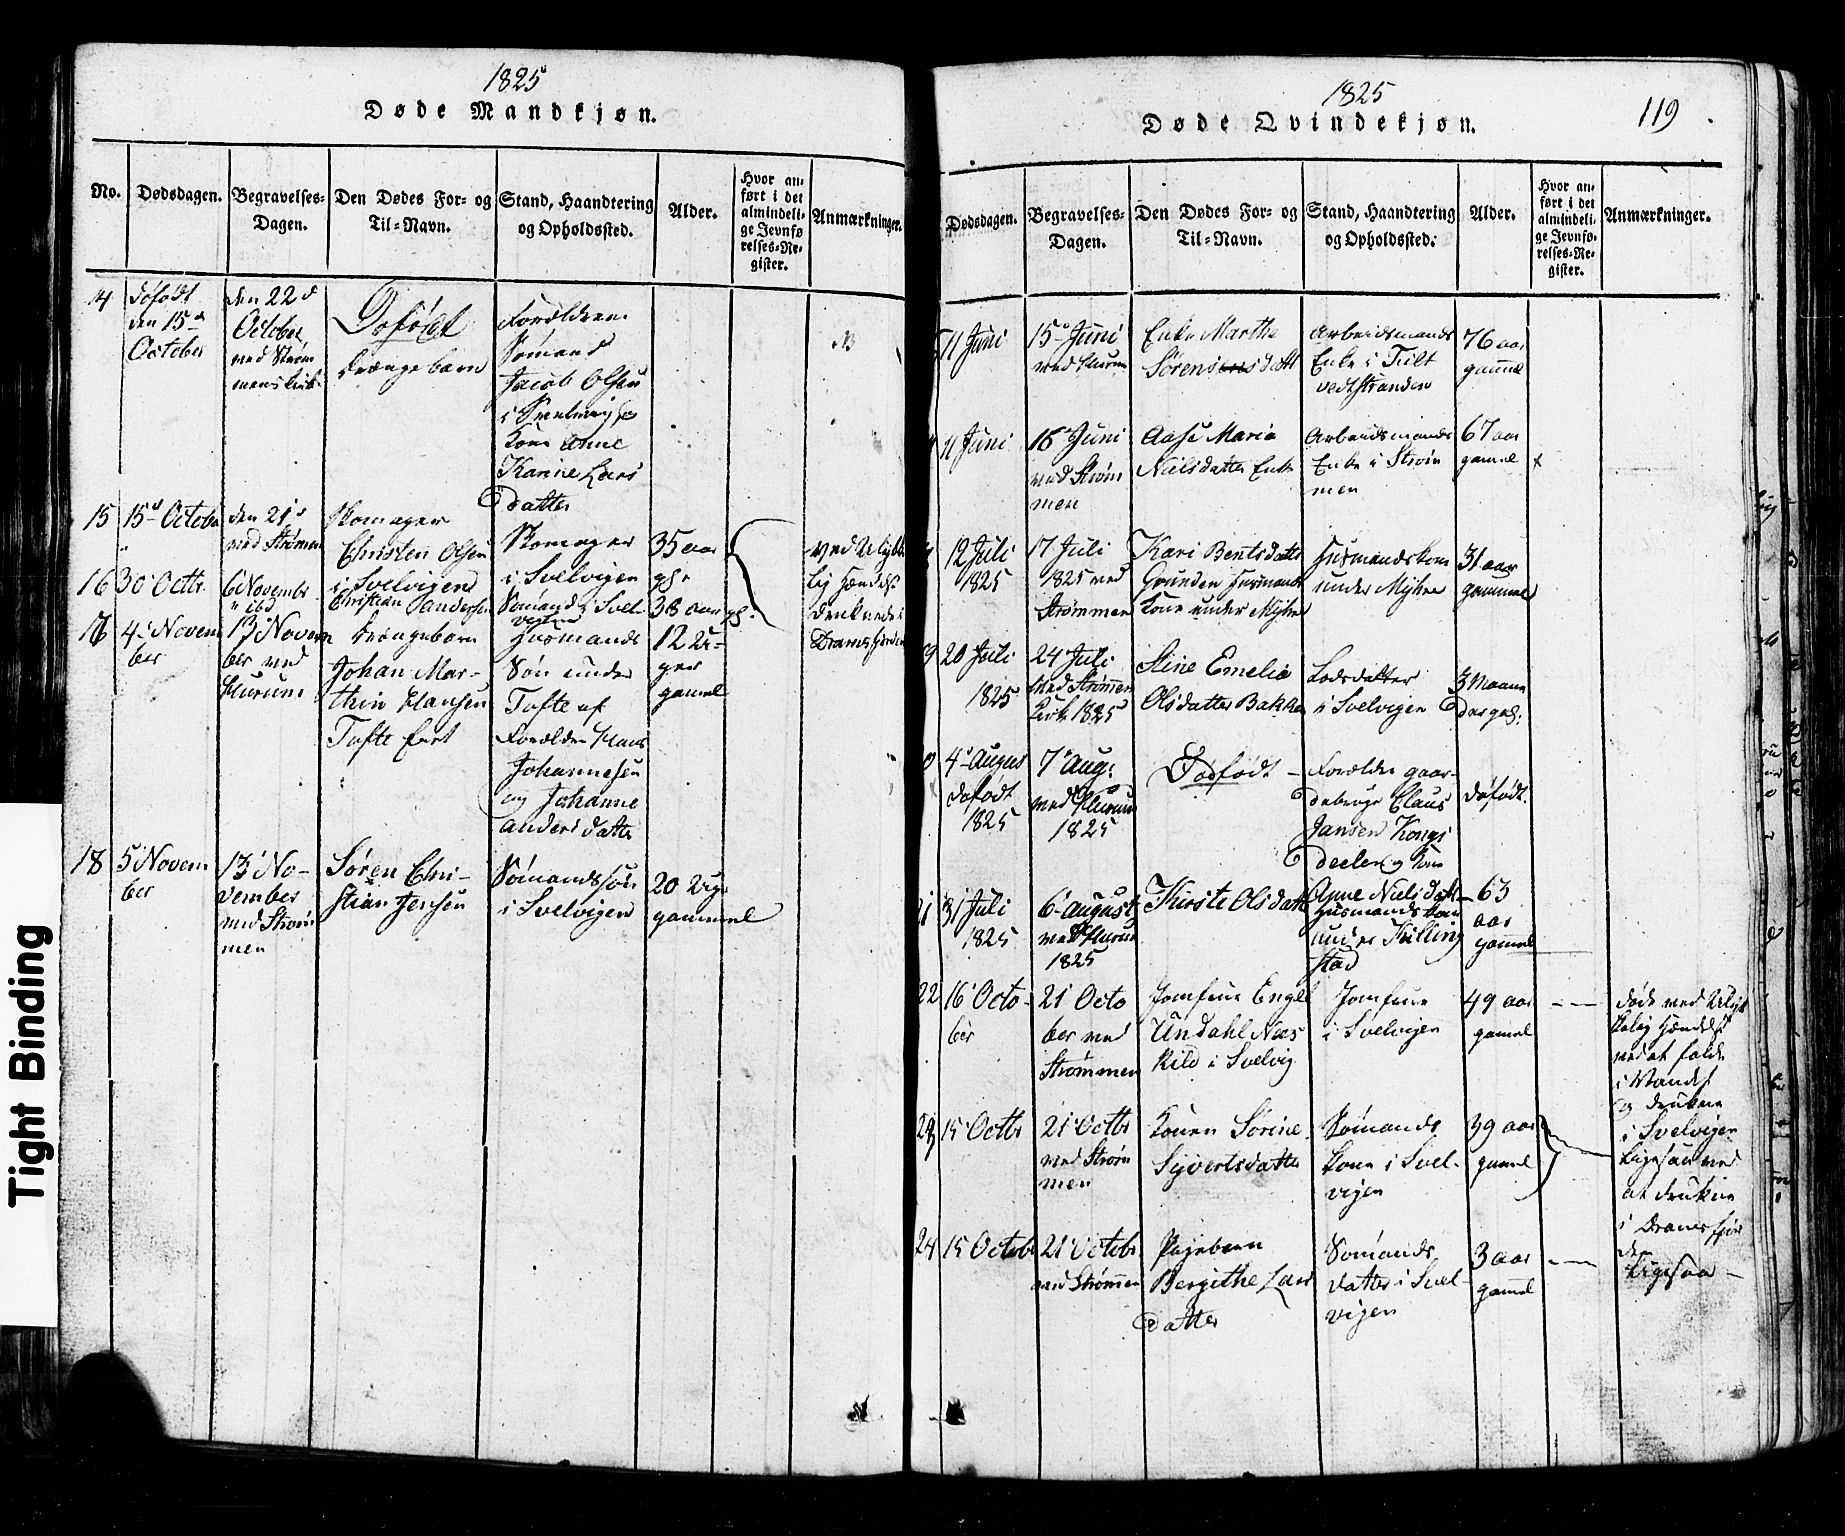 1825
Døde Mandkjøn.
No.
Dødsdagen.
Begravelses-
Dagen.
Den Dødes For- og
Til-Navn.
Stand, Haandtering
og Opholdssted.
Alder.
Hvor an-
ført i det
almindeli-
ge Jevnfø-
relses-Re-
gister.
Anmærkninger.
14
døfødt
den 15d
October
den 22d
October
ved Strøm
mens kirk
Døfødt
Drængebarn
Forældrene
Sømand
Jacob Olsen
i Svelvigen
Kone Anne
Karine Lars
Datter
15
15d October
den 21d
ved Strømen
Skomager
Christen Olsen
i Svelvigen
Skomager
i Svelvigen
35 aar
gl.
ved Ulykke
lig Hændelse
druknede i
Dramsfjorden
16
30 Octbr
6 Novembr
ibd
Christian Andersen
Sømand i Svel-
vigen
38 aar gl.
17
4 Novem
ber
13 Novem
ber ved
Hurum
Drængebarn
Johan Mar-
thin Hansen
Tofte Eiet
Husmands
Søn under
Tofte af
Forældre Hans
Johannesen
og Johanne
Anders datter
12 U-
ger
gamel
18
5 Novem
ber
13 No-
vember
ved Strøm
men
Søren Chri-
stian Jensen
Sømandssøn
i Svelvigen
20 Uger
gammel
1825
Døde Qvindekjøn.
119
Dødsdagen.
Begravelses-
Dagen.
Den Dødes For- og
Til-Navn.
Stand, Haandtering
og Opholdssted.
Alder.
Hvor an-
ført i det
almindeli-
ge Jevnfø-
relses-Re-
gister.
Anmærkninger.
11 Juni
15 Juni
ved Hurum
Enke Marthe
Sørensdatt
Arbeidsmands
Enke i Tult
vedtstranden
76 aar
gammel
11 Juni
18 Juni
ved Strøm
men
Aase Maria
Nielsdatter Enke
Arbeidsmands
Enke i Strøm
men
67 aar
gamel
12 Juli
1825
17 Juli
1825 ved
Strømmen
Kari Bentsdatter
Grunden Husmands
Kone under Myhre
Husmandskone
under Myhre
31 aar
gammel
20 Juli
1825
24 Juli
ved Strømmen
Kirke 1825
Stine Emelia
Olsdatter Bakke
Lodsdatter
i Svelvigen
3 Maane
der gl:
4 August
døfødt
1825
7 Aug:
ved Hurum
1825
Dødfødt
Forældre gaar-
debruge Claus
Jansen Kongs
deelen og Kone
Anne Nielsdatt
døfødt.
21
31 Juli
1825
6 August
ved Hurum
1825
Kirste Olsdatt
Husmandskone
under Killing
stad
63
aar
gamel
22
16 Octo-
ber
21 Octo
ber ved
Strømmen
Jomfrue Engel
Undahl Næs
Kild i Svelvig
Jomfrue
i Svelvigen
49 aar
gamel
døde ved Ulyk
kelig Hændelse
ved at falde
i Vandet
og drukne
i Svelvigen
23
15 Octbr
21 Octbr
ved Strøm
men
Konen Sørine
Syvertsdatter
Sømands
Kone i Svel-
vigen
39 aar
gamel
Ligesaa ved
at drukne
i Dramsfjor
den
24
15 Octobr
21 Octobr
ved Strømmen
Pigebarn
Bergithe Lars
datter
Sømands
datter i Svel-
vigen
3 aar
gamel
Ligesaa
Tight Binding